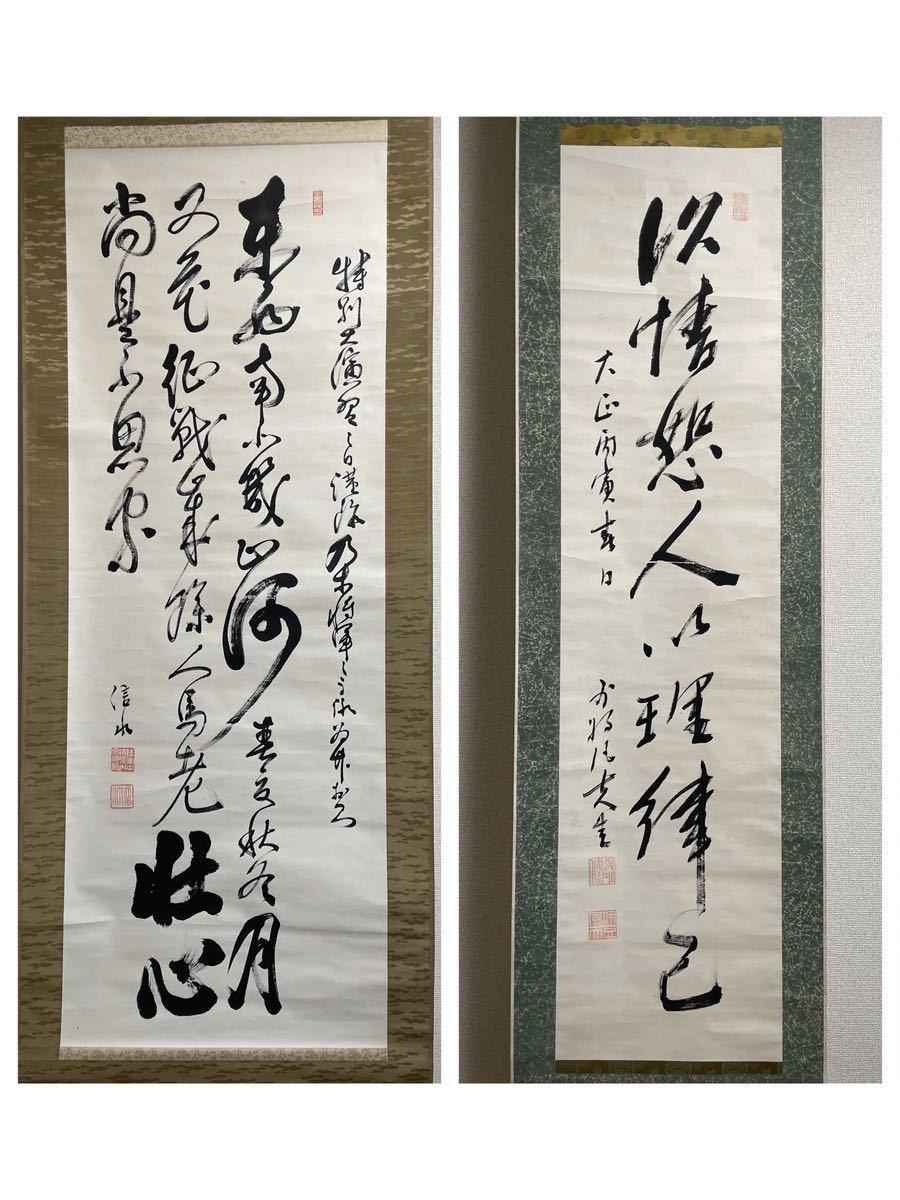 特別大演習之日謹錄乃木將軍之
東西南北幾山河春夏秋冬月
又花征戰歳餘人馬老壯心
尚是不思家
信水
以情恕人以理律己
大正丙寅春日